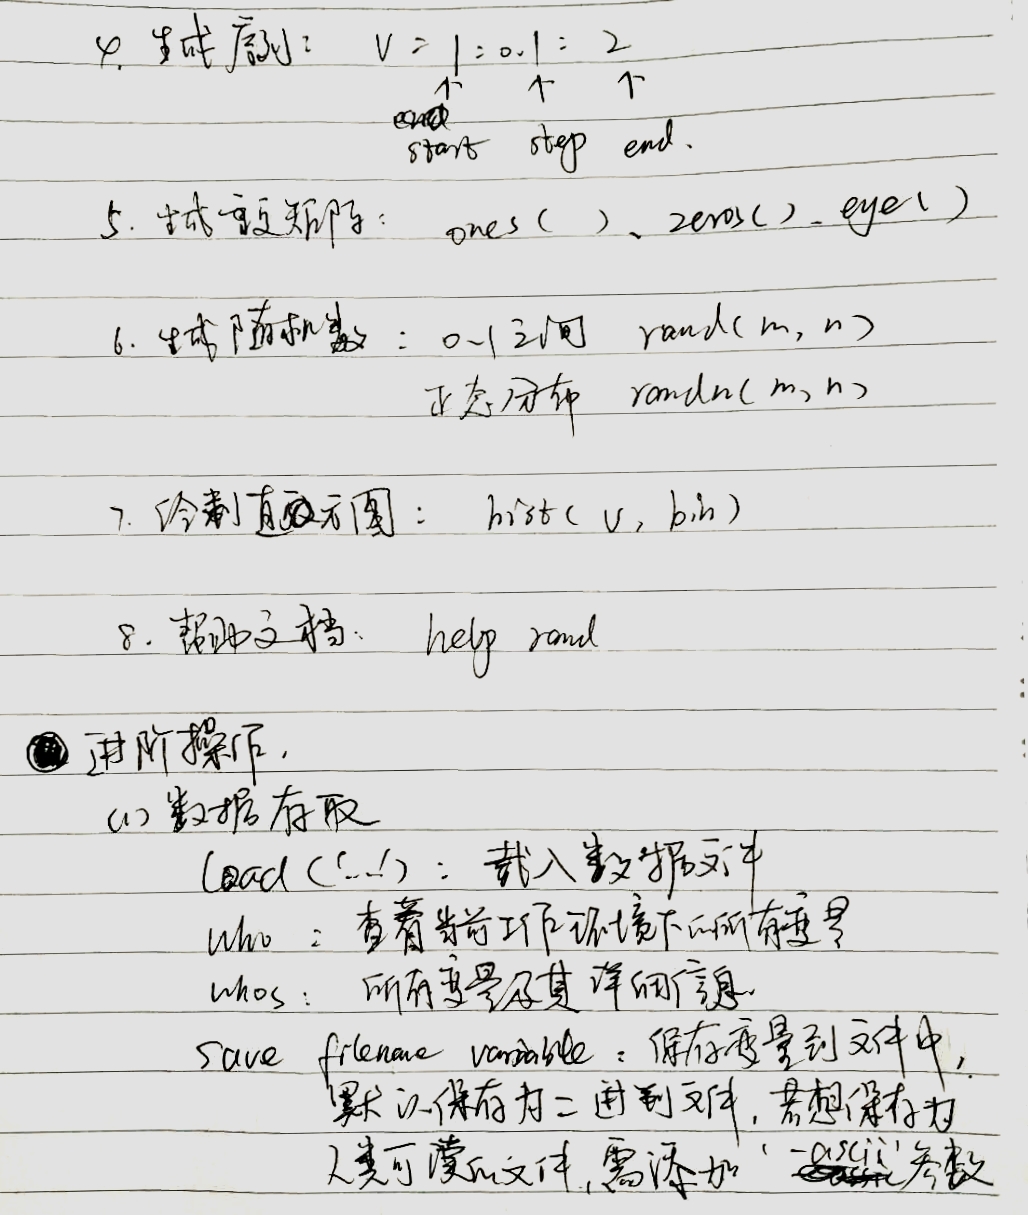 4. 生成序列: V = 1 : 0.1 : 2
↑ ↑ ↑
start step end.
5. 生成重复矩阵: ones( )、zeros()、eye()
6. 生成随机数: 0~1之间 rand(m, n)
正态分布 randn(m, n)
7. 绘制直方图: hist(v, bin)
8. 帮助文档: help rand
进阶操作.
(1) 数据存取
load('...'): 载入数据文件
who : 查看当前工作环境下的所有变量
whos: 所有变量及其详细信息.
save filename variable : 保存变量到文件中,
默认保存为二进制文件, 若想保存为
人类可读的文件, 需添加'-ascii'参数